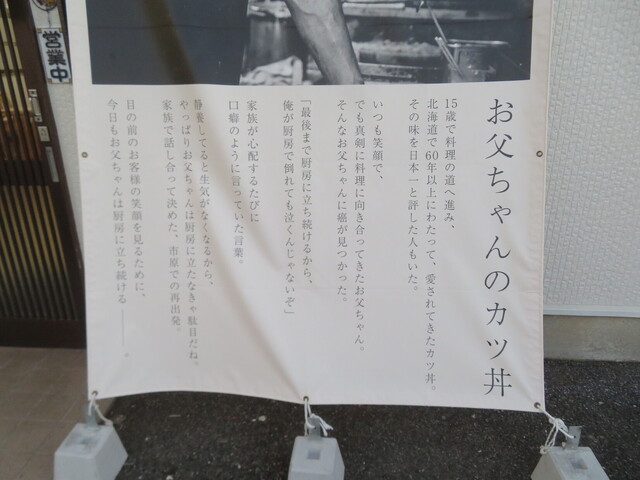 お父ちゃんのカツ丼
15歳で料理の道へ進み、
北海道で60年以上にわたって、愛されてきたカツ丼。
その味を日本一と評した人もいた。
いつも笑顔で、
でも真剣に料理に向き合ってきたお父ちゃん。
そんなお父ちゃんに癌が見つかった。
「最後まで厨房に立ち続けるから、
俺が厨房で倒れても泣くんじゃないぞ」
家族が心配するたびに
口癖のように言っていた言葉。
静養してると生気がなくなるから、
やっぱりお父ちゃんは厨房に立たなきゃ駄目だね。
家族で話し合って決めた、市原での再出発。
目の前のお客様の笑顔を見るために、
今日もお父ちゃんは厨房に立ち続ける―――。
営業中